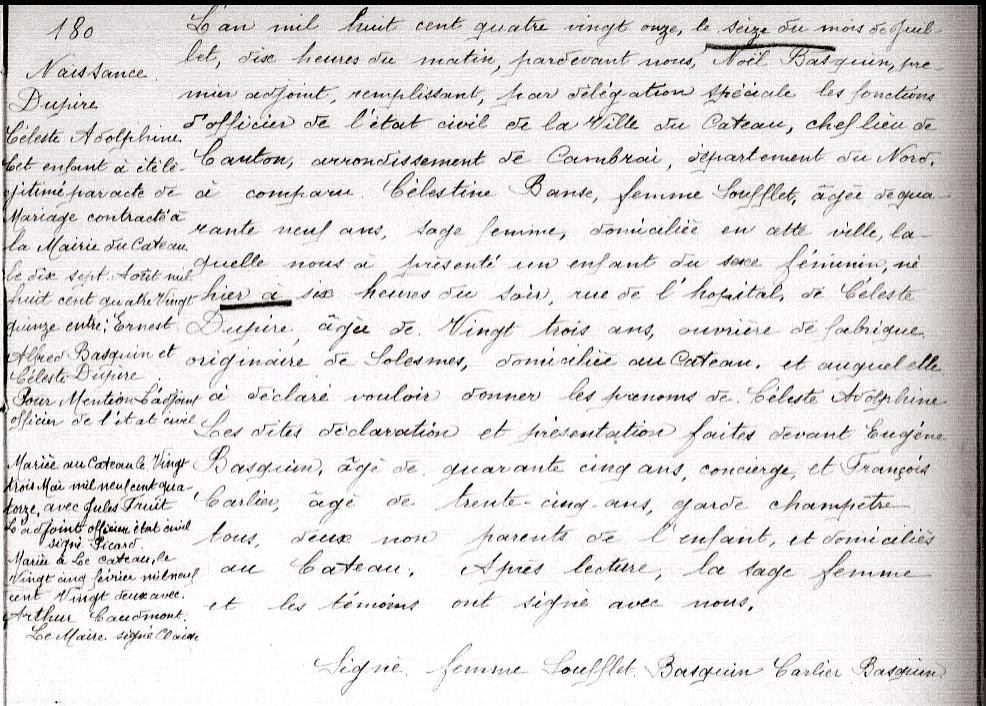 180
Naissance
Dupire
Céleste Adolphine
Cet enfant à été lé-
gitimé par acte de
Mariage contracté à
la Mairie du Cateau
le dix sept Août mil
huit cent quatre Vingt
quinze entre; Ernest
Alfred Basquin et
Céleste Dupire
Pour Mention L'adjoint
officier de l'état civil
Mariée au Cateau le Vingt
trois Mai mil neuf cent qua-
torze, avec Jules Fruit
L'adjoint officier état civil
signé Picard.
Mariée à Le Cateau, le
Vingt cinq février mil neuf
cent Vingt deux avec.
Arthur Caudmont.
Le Maire signé
L'an mil huit cent quatre vingt onze, le seize du mois de Juil-
let, dix heures du matin, pardevant nous, Noël Basquin, pre-
mier adjoint, remplissant, par délégation spéciale les fonctions
d'officier de l'état civil de la Ville du Cateau, chef lieu de
Canton, arrondissement de Cambrai, département du Nord.
à comparu Célestine Banse, femme Soufflet, âgée de qua-
rante neuf ans, sage femme, domiciliée en cette ville, la-
quelle nous à présenté un enfant du sexe féminin, né
hier à six heures du soir, rue de l'hopital, de Céleste
Dupire, âgée de Vingt trois ans, ouvrière de fabrique
originaire de Solesmes, domiciliée au Cateau. et auquel elle
à déclaré vouloir donner les prenoms de Céleste Adolphine
Les dites déclaration et présentation faites devant Eugène
Basquin, âgé de quarante cinq ans, concierge, et François
Carlier, âgé de trente-cinq ans, garde champêtre
tous, deux non parents de l'enfant, et domiciliés
au Cateau. Après lecture, la sage femme
et les témoins ont signé avec nous.
Signé femme Soufflet. Basquin Carlier Basquin.